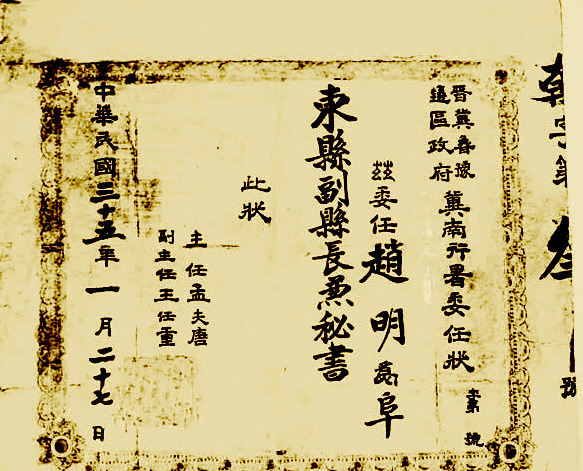 字第叁號
晋冀魯豫
邊區政府
冀南行署委任狀 字第 號
茲委任趙明為阜
東縣副縣長兼秘書
此狀
主任孟夫唐
副主任王任重
中華民國三十五年一月二十七日